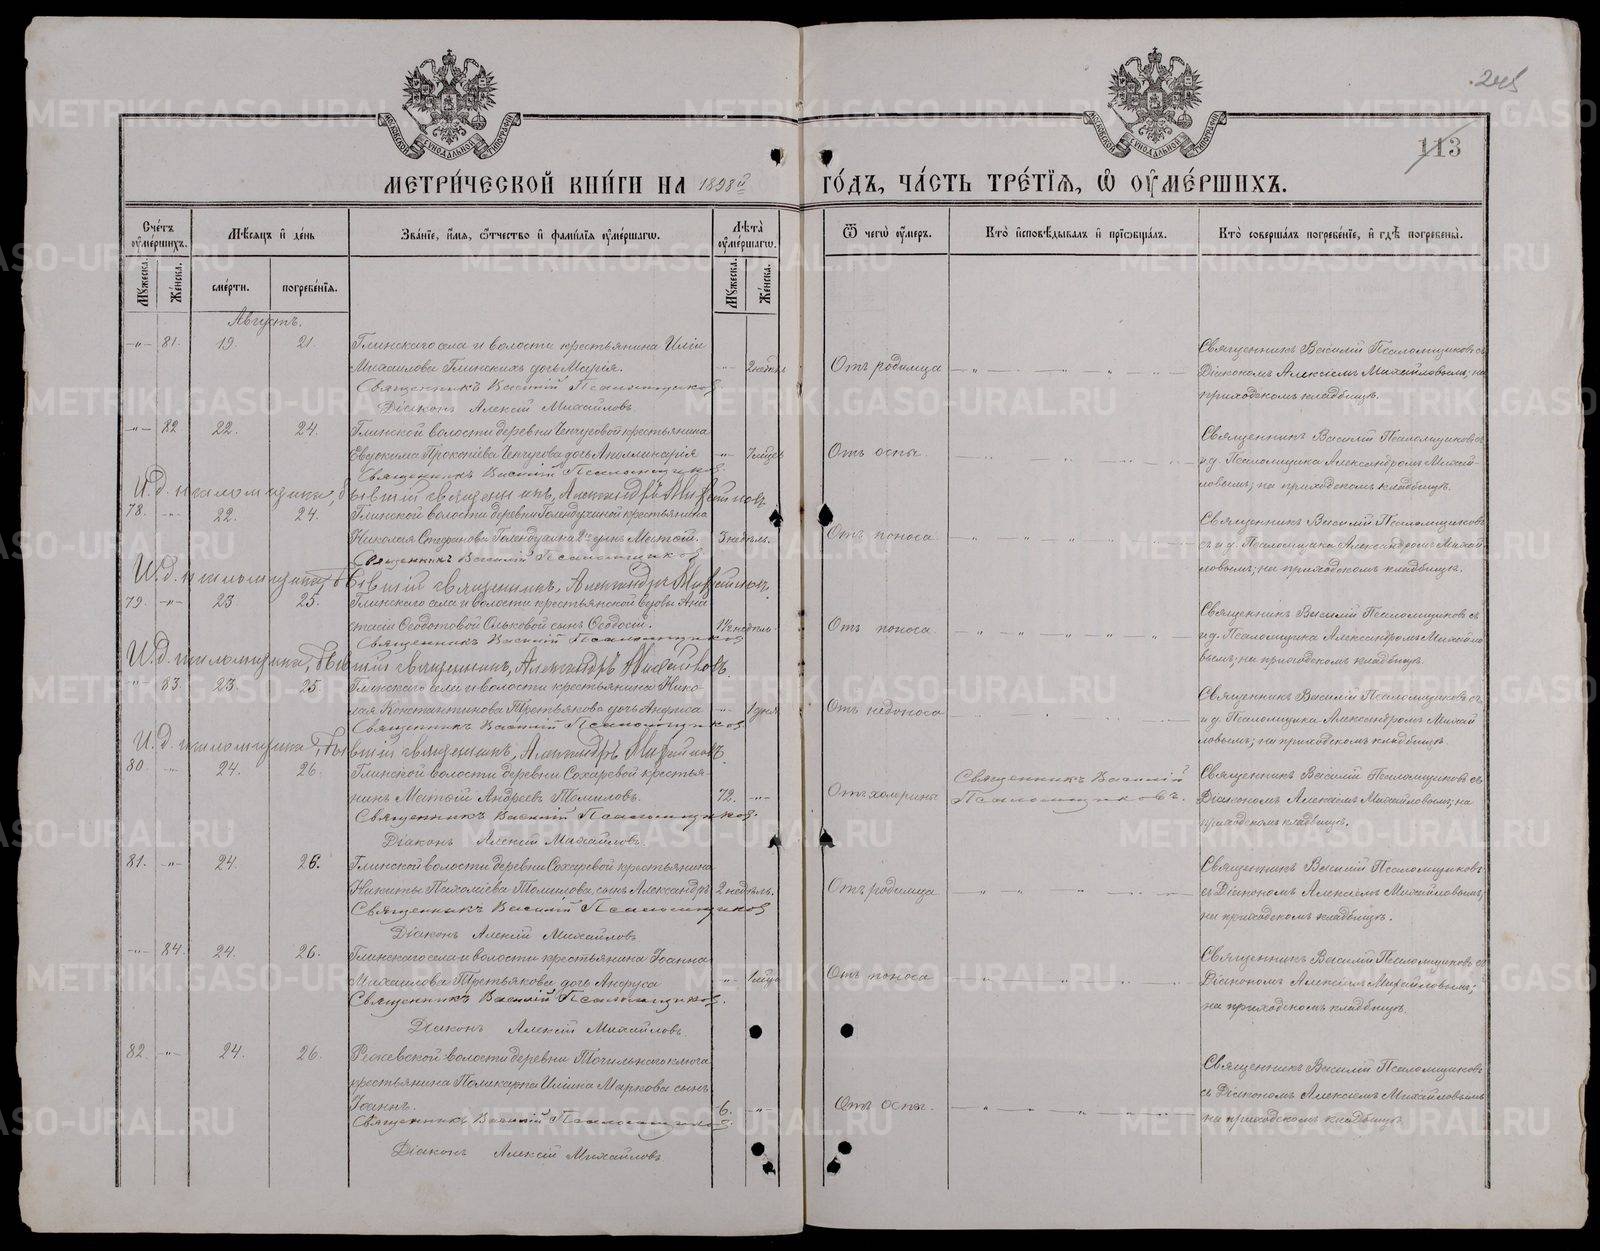 245
113
МОСКОВСКОЙ СУНОДАЛЬНОЙ ТИПОГРАФІИ
МОСКОВСКОЙ СУНОДАЛЬНОЙ ТИПОГРАФІИ
МЕТРИ́ЧЕСКОЙ КНИ́ГИ НА 1898й ГО́ДЪ, ЧА́СТЬ ТРЕ́ТІѦ, Ѡ ОУМЕ́РШИХЪ.
Сче́тъ оумершихъ.
Мѣсяцъ и день
Званіе, имя, отчество и фамилія оумершагѡ.
Лѣта оумершагѡ.
Ѿ чегѡ оумеръ.
Кто исповѣдывалъ и пріобщалъ.
Кто совершалъ погребеніе, и гдѣ погребены.
Мужеска. Женска. смерти. погребенія. Мужеска. Женска.
Августъ.
-"- 81. 19. 21. Глинскаго села и волости крестьянина Иліи
Михаилова Глинскихъ дочь Марія. -"- 2 недѣл Отъ родимца
Священникъ Василій Псаломщиковъ
Діаконъ Алексій Михайловъ.
Священникъ Василій Псаломщиковъ съ
Діакономъ Алексіемъ Михайловымъ; на
приходскомъ кладбищѣ.
-"- 82 22. 24. Глинской волости деревни Чепчуговой крестьянина
Евдокима Прокопіева Чепчугова дочь Аполлинарія -"- Отъ оспы.
Священникъ Василій Псаломщиковъ.
И.д. псаломщика, бывшій священникъ, Александръ Михайловъ.
Священникъ Василій Псаломщиковъ съ
и.д. Псаломщика Александромъ Михай-
ловымъ; на приходскомъ кладбищѣ.
78. -"- 22. 24. Глинской волости деревни Голендухиной крестьянина
Николая Стефанова Голендухина сынъ Матѳій. 3 недѣль. Отъ поноса
Священникъ Василій Псаломщиковъ
И.д. псаломщика, бывшій священникъ, Александръ Михайловъ.
Священникъ Василій Псаломщиковъ
съ и.д. Псаломщика Александромъ Михай
ловымъ; на приходскомъ кладбищѣ.
79. -"- 23 25. Глинскаго села и волости крестьянской вдовы Ана
стасіи Ѳеодотовой Ольковой сынъ Ѳеодосій. 1½ недѣль. Отъ поноса
Священникъ Василій Псаломщиковъ
И.д. псаломщика, бывшій священникъ, Александръ Михайловъ.
Священникъ Василій Псаломщиковъ съ
и.д. Псаломщика Александромъ Михайло
вымъ; на приходскомъ кладбищѣ.
-"- 83. 23. 25. Глинскаго села и волости крестьянина Нико-
лая Константинова Третьякова дочь Анфиса -"- 1 дня Отъ недоноса
Священникъ Василій Псаломщиковъ
И.д. псаломщика, бывшій священникъ, Александръ Михайловъ.
Священникъ Василій Псаломщиковъ съ
и.д. Псаломщика Александромъ Михай
ловымъ; на приходскомъ кладбищѣ.
80. -"- 24. 26. Глинской волости деревни Сохаревой крестья
нинъ Матѳій Андреевъ Томиловъ. 72. -"- Отъ холерины
Священникъ Василій Псаломщиковъ.
Діаконъ Алексій Михайловъ.
Священникъ Василій
Псаломщиковъ.
Священникъ Василій Псаломщиковъ съ
Діакономъ Алексіемъ Михайловымъ; на
приходскомъ кладбищѣ.
81. -"- 24. 26. Глинской волости деревни Сохаревой крестьянина
Никиты Пахоміева Томилова, сынъ Александръ 2 недѣль. Отъ родимца
Священникъ Василій Псаломщиковъ
Діаконъ Алексій Михайловъ
Священникъ Василій Псаломщиковъ
съ Діакономъ Алексіемъ Михайловымъ;
на приходскомъ кладбищѣ.
-"- 84. 24. 26. Глинскаго села и волости крестьянина Іоанна
Михаилова Третьякова дочь Анфуса -"- Отъ поноса
Священникъ Василій Псаломщиковъ.
Діаконъ Алексій Михайловъ
Священникъ Василій Псаломщиковъ съ
Діакономъ Алексіемъ Михайловымъ;
на приходскомъ кладбищѣ.
82. -"- 24. 26. Режевской волости деревни Точильнаго ключа
крестьянина Поликарпа Иліина Маркова сынъ
Іоаннъ. 6. -"- Отъ оспы.
Священникъ Василій Псаломщиковъ.
Діаконъ Алексій Михайловъ
Священникъ Василій Псаломщиковъ
съ Діакономъ Алексіемъ Михайловымъ
на приходскомъ кладбищѣ
METRIKI.GASO-URAL.RU